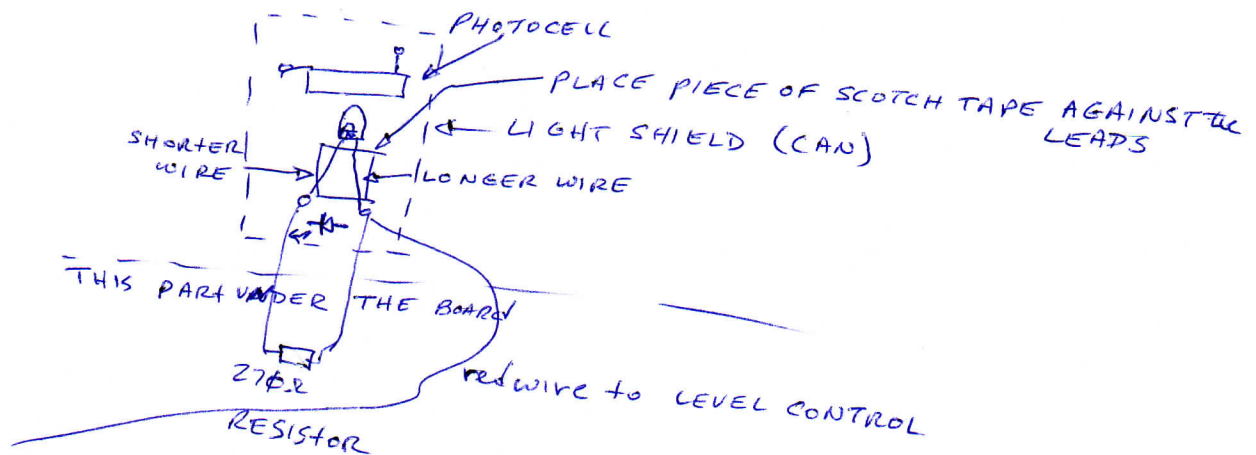 PHOTOCELL
PLACE PIECE OF SCOTCH TAPE AGAINST the
LEADS
LIGHT SHIELD (CAN)
SHORTER
WIRE
LONGER WIRE
THIS PART UNDER THE BOARD
270Ω
RESISTOR
red wire to LEVEL CONTROL